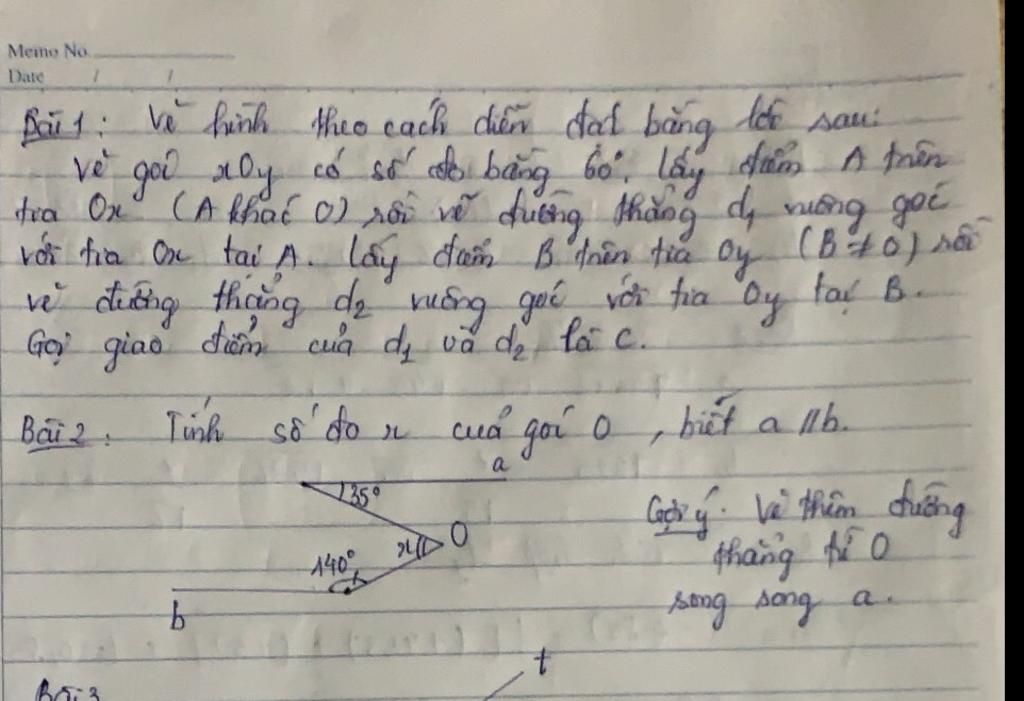 Memo No.
Date / /
Bài 1: Vẽ hình theo cách diễn đạt bằng lời sau:
Vẽ góc xOy có số đo bằng 60°, lấy điểm A trên
tia Ox (A khác O) rồi vẽ đường thẳng d₁ vuông góc
với tia Ox tại A. Lấy điểm B trên tia Oy (B ≠ O) rồi
vẽ đường thẳng d₂ vuông góc với tia Oy tại B.
Gọi giao điểm của d₁ và d₂ là C.
Bài 2: Tính số đo x của góc O, biết a // b.
a
35°
x O
140°
b
Gợi ý: Vẽ thêm đường
thẳng từ O
song song a.
t
Bài 3